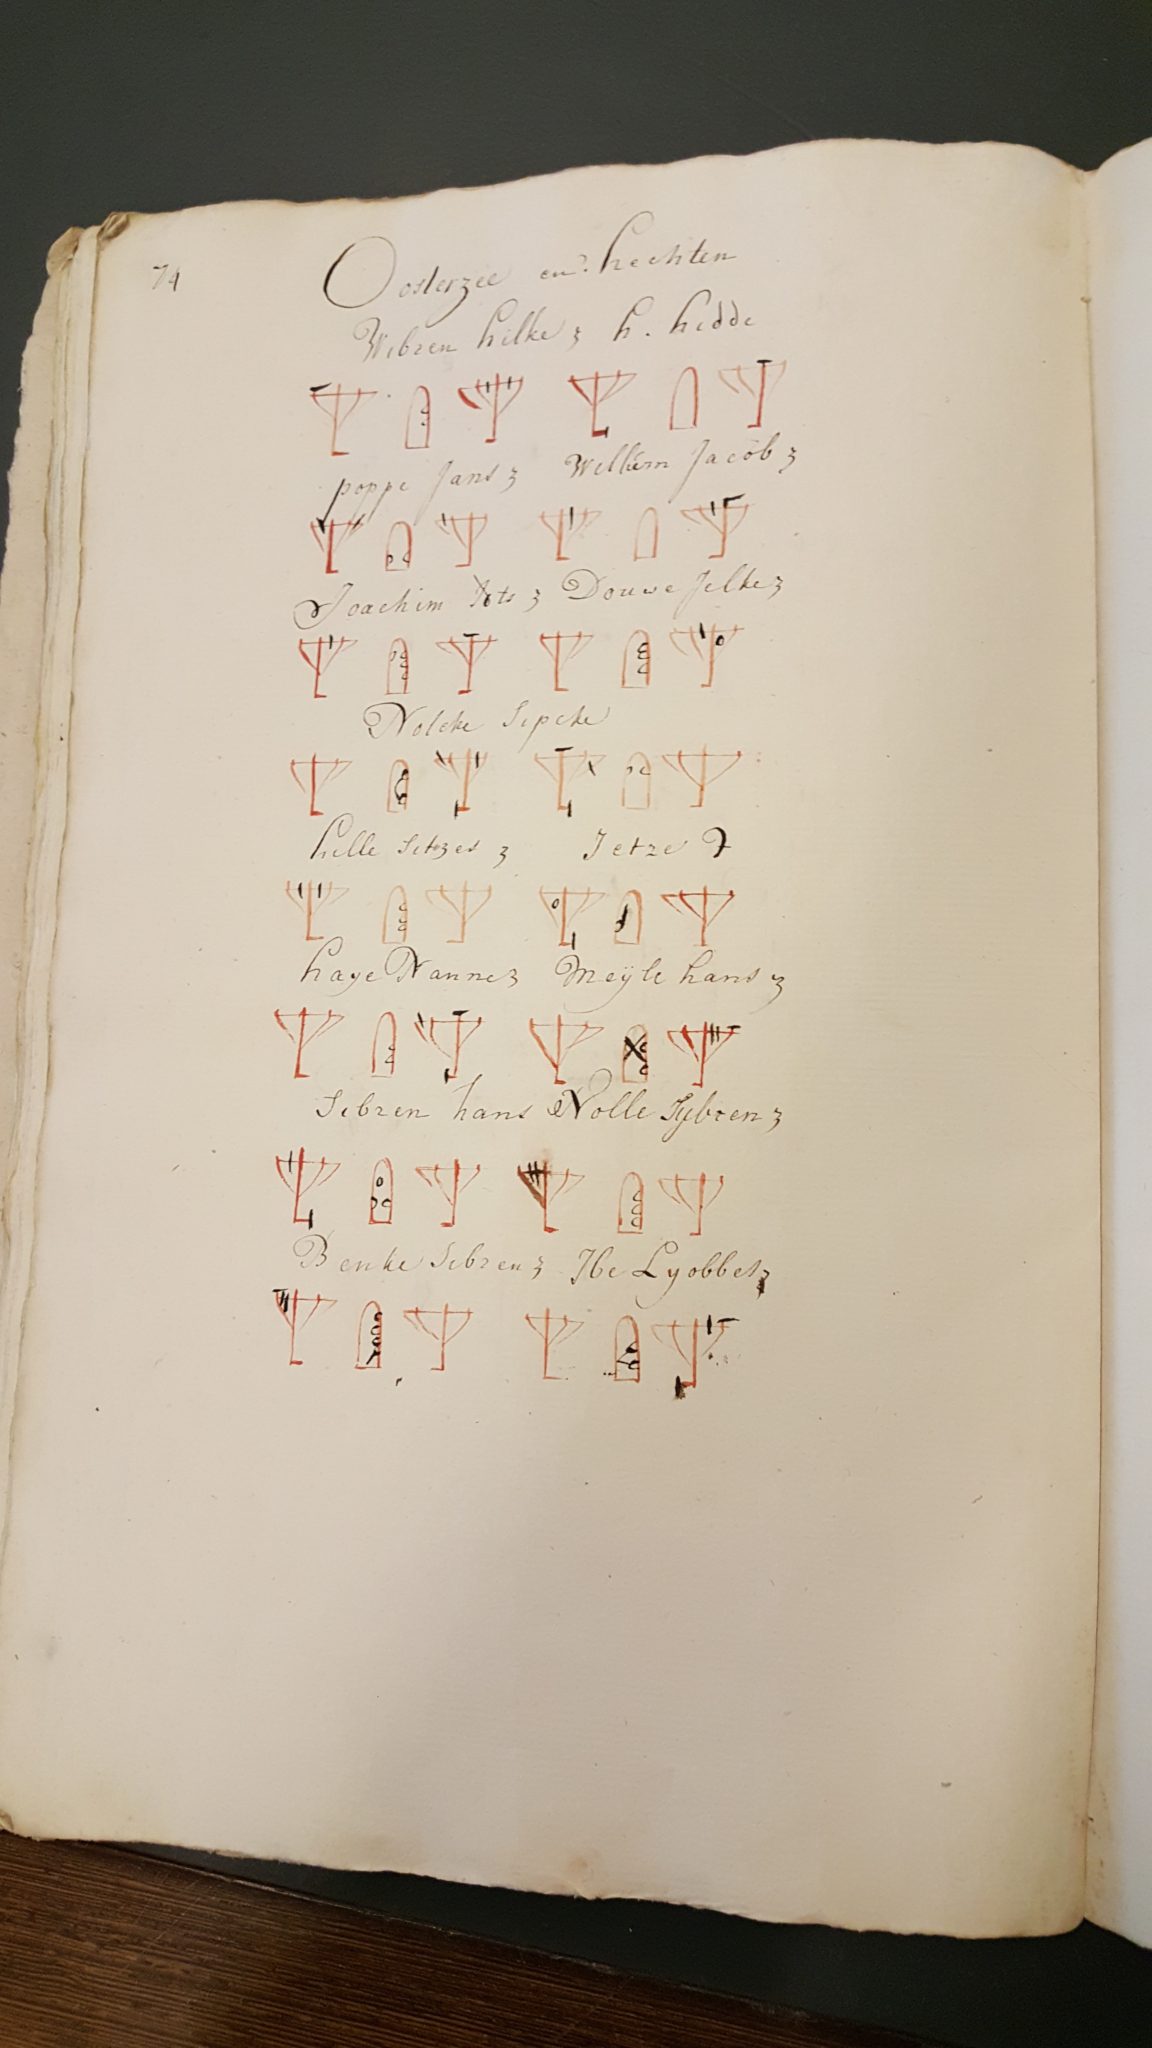 74
Oosterzee en hechten
Wibren hilke z h. hedde
poppe Jans z Willem Jacob z
Joachim z Douwe Jelke z
Nolcke Sipcke
hille Sitzes z Jetze
haye Nanne z Meÿle hans z
Sibren hans Nolle Sÿbren z
Benke Sibren z Ibe Lyobbes z